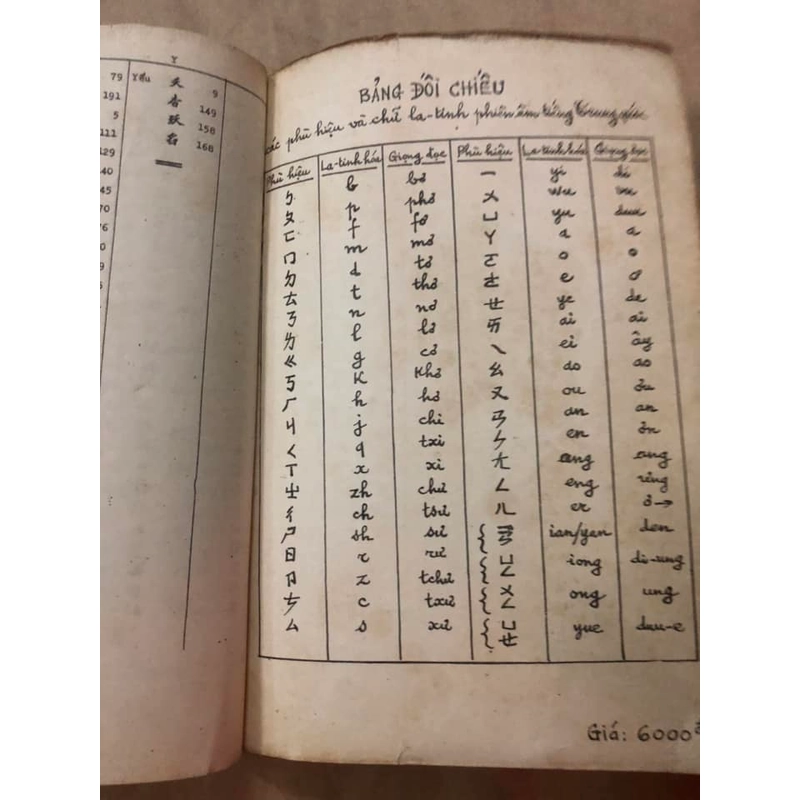 Y
79 Yểu 夭 9
191 杳 149
5 跃 158
111 窅 168
129
40
45
70
76
BẢNG ĐỐI CHIẾU
các phù hiệu và chữ la-tinh phiên âm tiếng Trung quốc
Phù hiệu La-tinh hóa Giọng đọc Phù hiệu La-tinh hóa Giọng đọc
ㄅ b bơ ㄧ yi di
ㄆ p phơ ㄨ wu vu
ㄈ f fơ ㄩ yu duu
ㄇ m mơ ㄚ a a
ㄉ d tơ ㄛ o o
ㄊ t thơ ㄜ e ơ
ㄋ n nơ ㄝ ye de
ㄌ l lơ ㄞ ai ai
ㄍ g cơ ㄟ ei ây
ㄎ k khơ ㄠ ao ao
ㄏ h hơ ㄡ ou ôu
ㄐ j chi ㄢ an an
ㄑ q txi ㄣ en ôn
ㄒ x xi ㄤ ang ang
ㄓ zh chư ㄥ eng
ㄔ ch tsư ㄦ er ơ→
ㄕ sh sư ㄧㄢ ian/yan den
ㄖ r rư ㄩㄥ iong di-ung
ㄗ z tchư ㄨㄥ ong ung
ㄘ c txư ㄩㄝ yue duu-e
ㄙ s xư
Giá: 6000đ